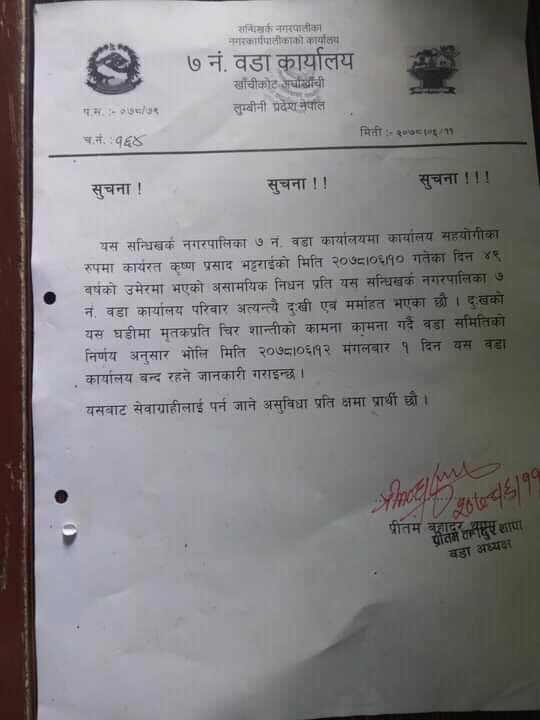 सन्धिखर्क नगरपालीका
नगरकार्यपालीकाको कार्यालय
७ नं. वडा कार्यालय
खाँचीकोट अर्घाखाँची
लुम्बीनी प्रदेश नेपाल
प.स. :- ०७८/७९
च.नं. : १६४
मिती :- २०७८।०६/११
सुचना !
सुचना ! !
सुचना ! ! !
यस सन्धिखर्क नगरपालिका ७ नं. वडा कार्यालयमा कार्यालय सहयोगीका
रुपमा कार्यरत कृष्ण प्रसाद भट्टराईको मिति २०७८।०६/१० गतेका दिन ४९
बर्षको उमेरमा भएको असामयिक निधन प्रति यस सन्धिखर्क नगरपालिका ७
नं. वडा कार्यालय परिवार अत्यन्त्यै दुःखी एवं मर्माहत भएका छौ । दुःखको
यस घडीमा मृतकप्रति चिर शान्तीको कामना कामना गर्दै वडा समितिको
निर्णय अनुसार भोलि मिति २०७८।०६/१२ मंगलबार १ दिन यस वडा
कार्यालय बन्द रहने जानकारी गराइन्छ ।
यसवाट सेवाग्राहीलाई पर्न जाने असुविधा प्रति क्षमा प्रार्थी छौ ।
२०७८/६/११
प्रीतम बहादुर थापा
प्रीतम बहादुर थापा
वडा अध्यक्ष